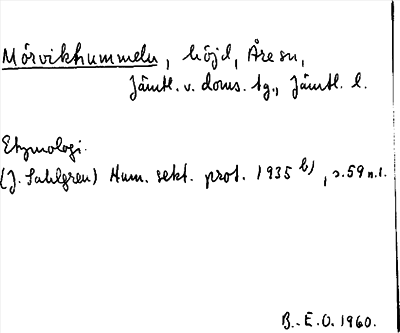 Mörvikhummeln, höjd, Åre sn,
Jämtl. v. doms. tg., Jämtl. l.
Etymologi.
(J. Sahlgren) Hum. sekt. prot. 1935 b), s. 59 n. 1.
B. E. O. 1960.